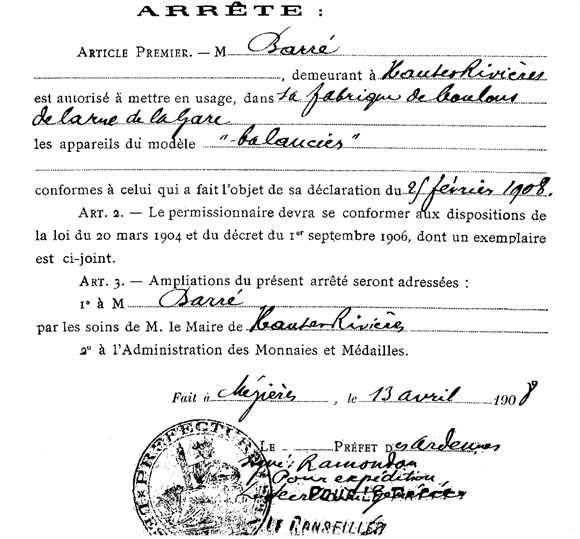 ARRÊTE :
ARTICLE PREMIER. — M Barré
, demeurant à Hautes Rivières
est autorisé à mettre en usage, dans sa fabrique de boulons
de la rue de la Gare
les appareils du modèle "balancier"
conformes à celui qui a fait l'objet de sa déclaration du 25 février 1908.
ART. 2. — Le permissionnaire devra se conformer aux dispositions de
la loi du 20 mars 1904 et du décret du 1er septembre 1906, dont un exemplaire
est ci-joint.
ART. 3. — Ampliations du présent arrêté seront adressées :
1° à M Barré
par les soins de M. le Maire de Hautes Rivières
2° à l'Administration des Monnaies et Médailles.
Fait à Mézières, le 13 avril 1908
LE PRÉFET des Ardennes
signé : Ramondou
Pour expédition
PRÉFECTURE